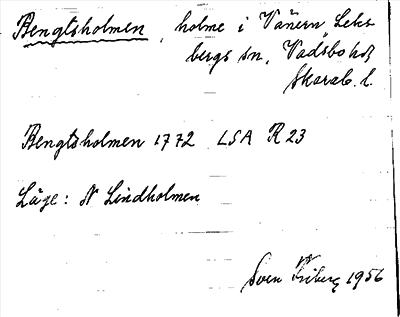 Bengtsholmen, holme i Vänern, Leks-
bergs sn, Vadsbo hd,
Skarab. l.
Bengtsholmen 1772 LSA R 23
Läge: N Lindholmen
Sven Friberg 1956